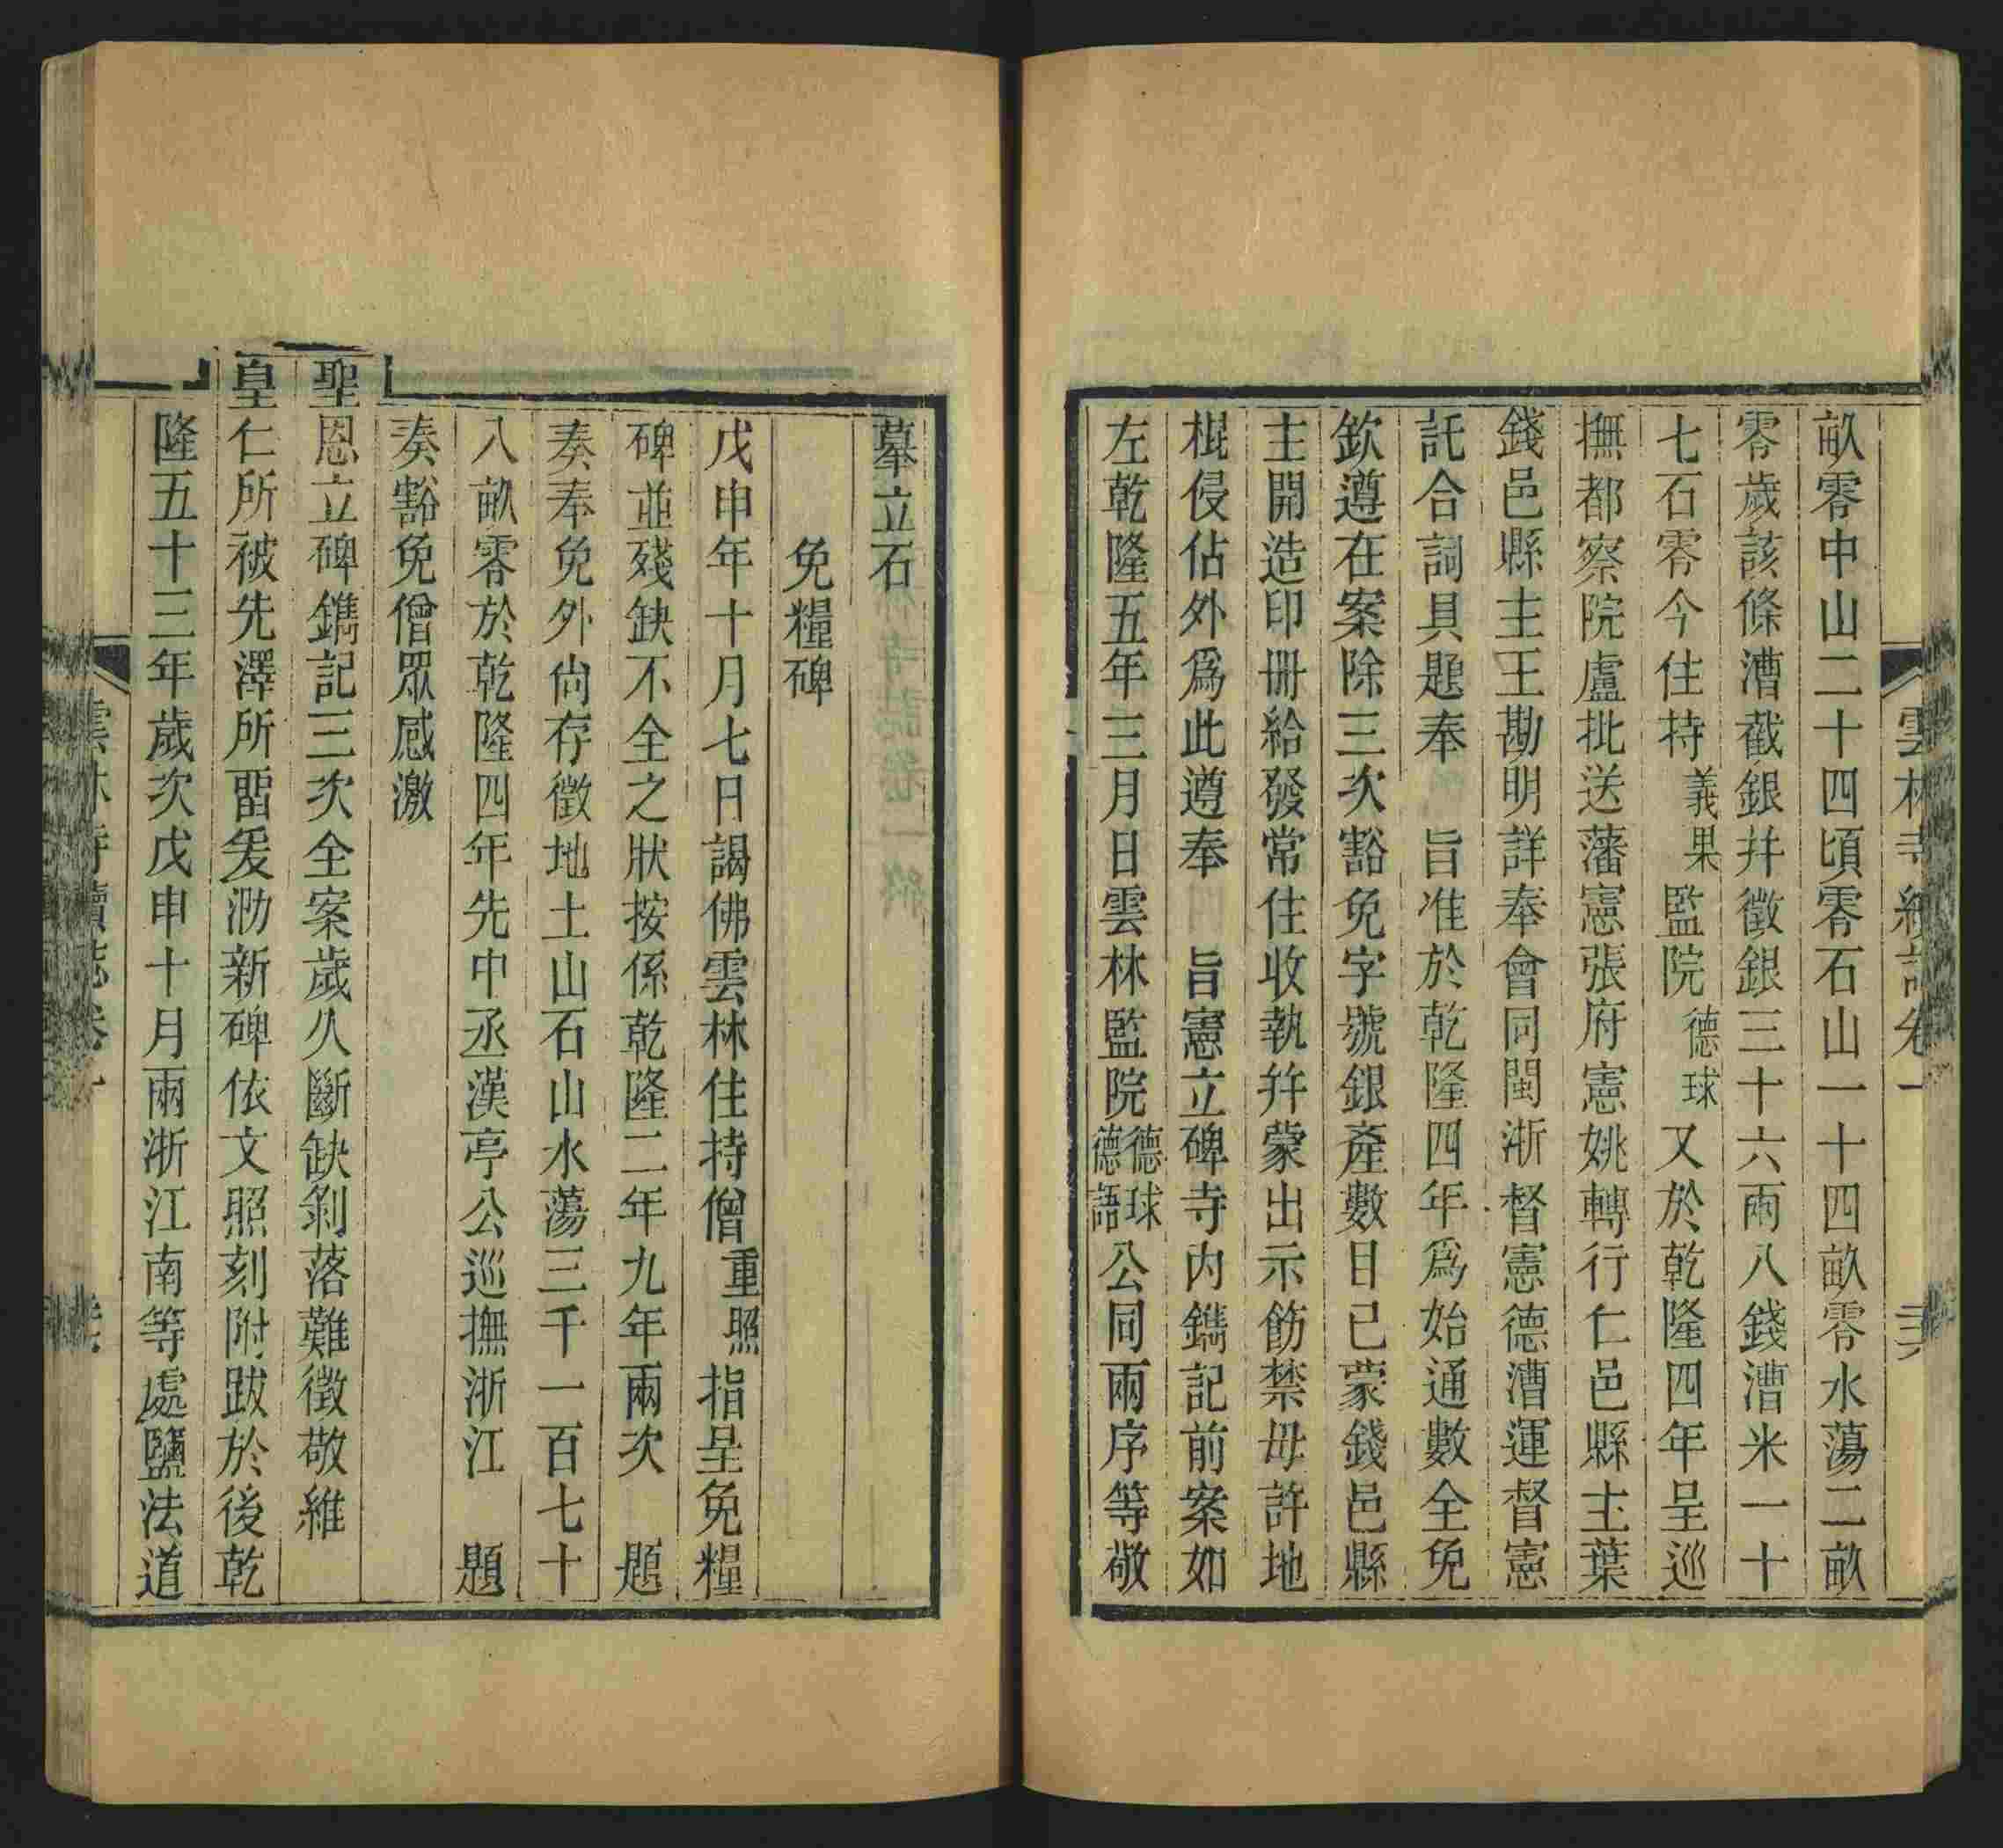 雲林寺續誌卷一
畝零中山二十四頃零石山一十四畝零水蕩二畝
零歲該條漕截銀幷徵銀三十六兩八錢漕米一十
七石零今住持義果監院德球又於乾隆四年呈巡
撫都察院盧批送藩憲張府憲姚轉行仁邑縣主葉
錢邑縣主王勘明詳奉會同閩浙督憲德漕運督憲
託合詞具題奉 旨准於乾隆四年爲始通數全免
欽遵在案除三次豁免字號銀產數目已蒙錢邑縣
主開造印冊給發常住收執幷蒙出示飭禁毋許地
棍侵佔外爲此遵奉 旨憲立碑寺內鐫記前案如
左乾隆五年三月日雲林監院德球德語公同兩序等敬
摹立石
免糧碑
戊申年十月七日謁佛雲林住持僧重照指呈免糧
碑並殘缺不全之狀按係乾隆二年九年兩次 題
奏奉免外尙存徵地土山石山水蕩三千一百七十
八畝零於乾隆四年先中丞漢亭公巡撫浙江 題
奏豁免僧眾感激
聖恩立碑鐫記三次全案歲久斷缺剝落難徵敬維
皇仁所被先澤所畱爰泐新碑依文照刻附跋於後乾
隆五十三年歲次戊申十月兩浙江南等處鹽法道
雲林寺續誌卷一